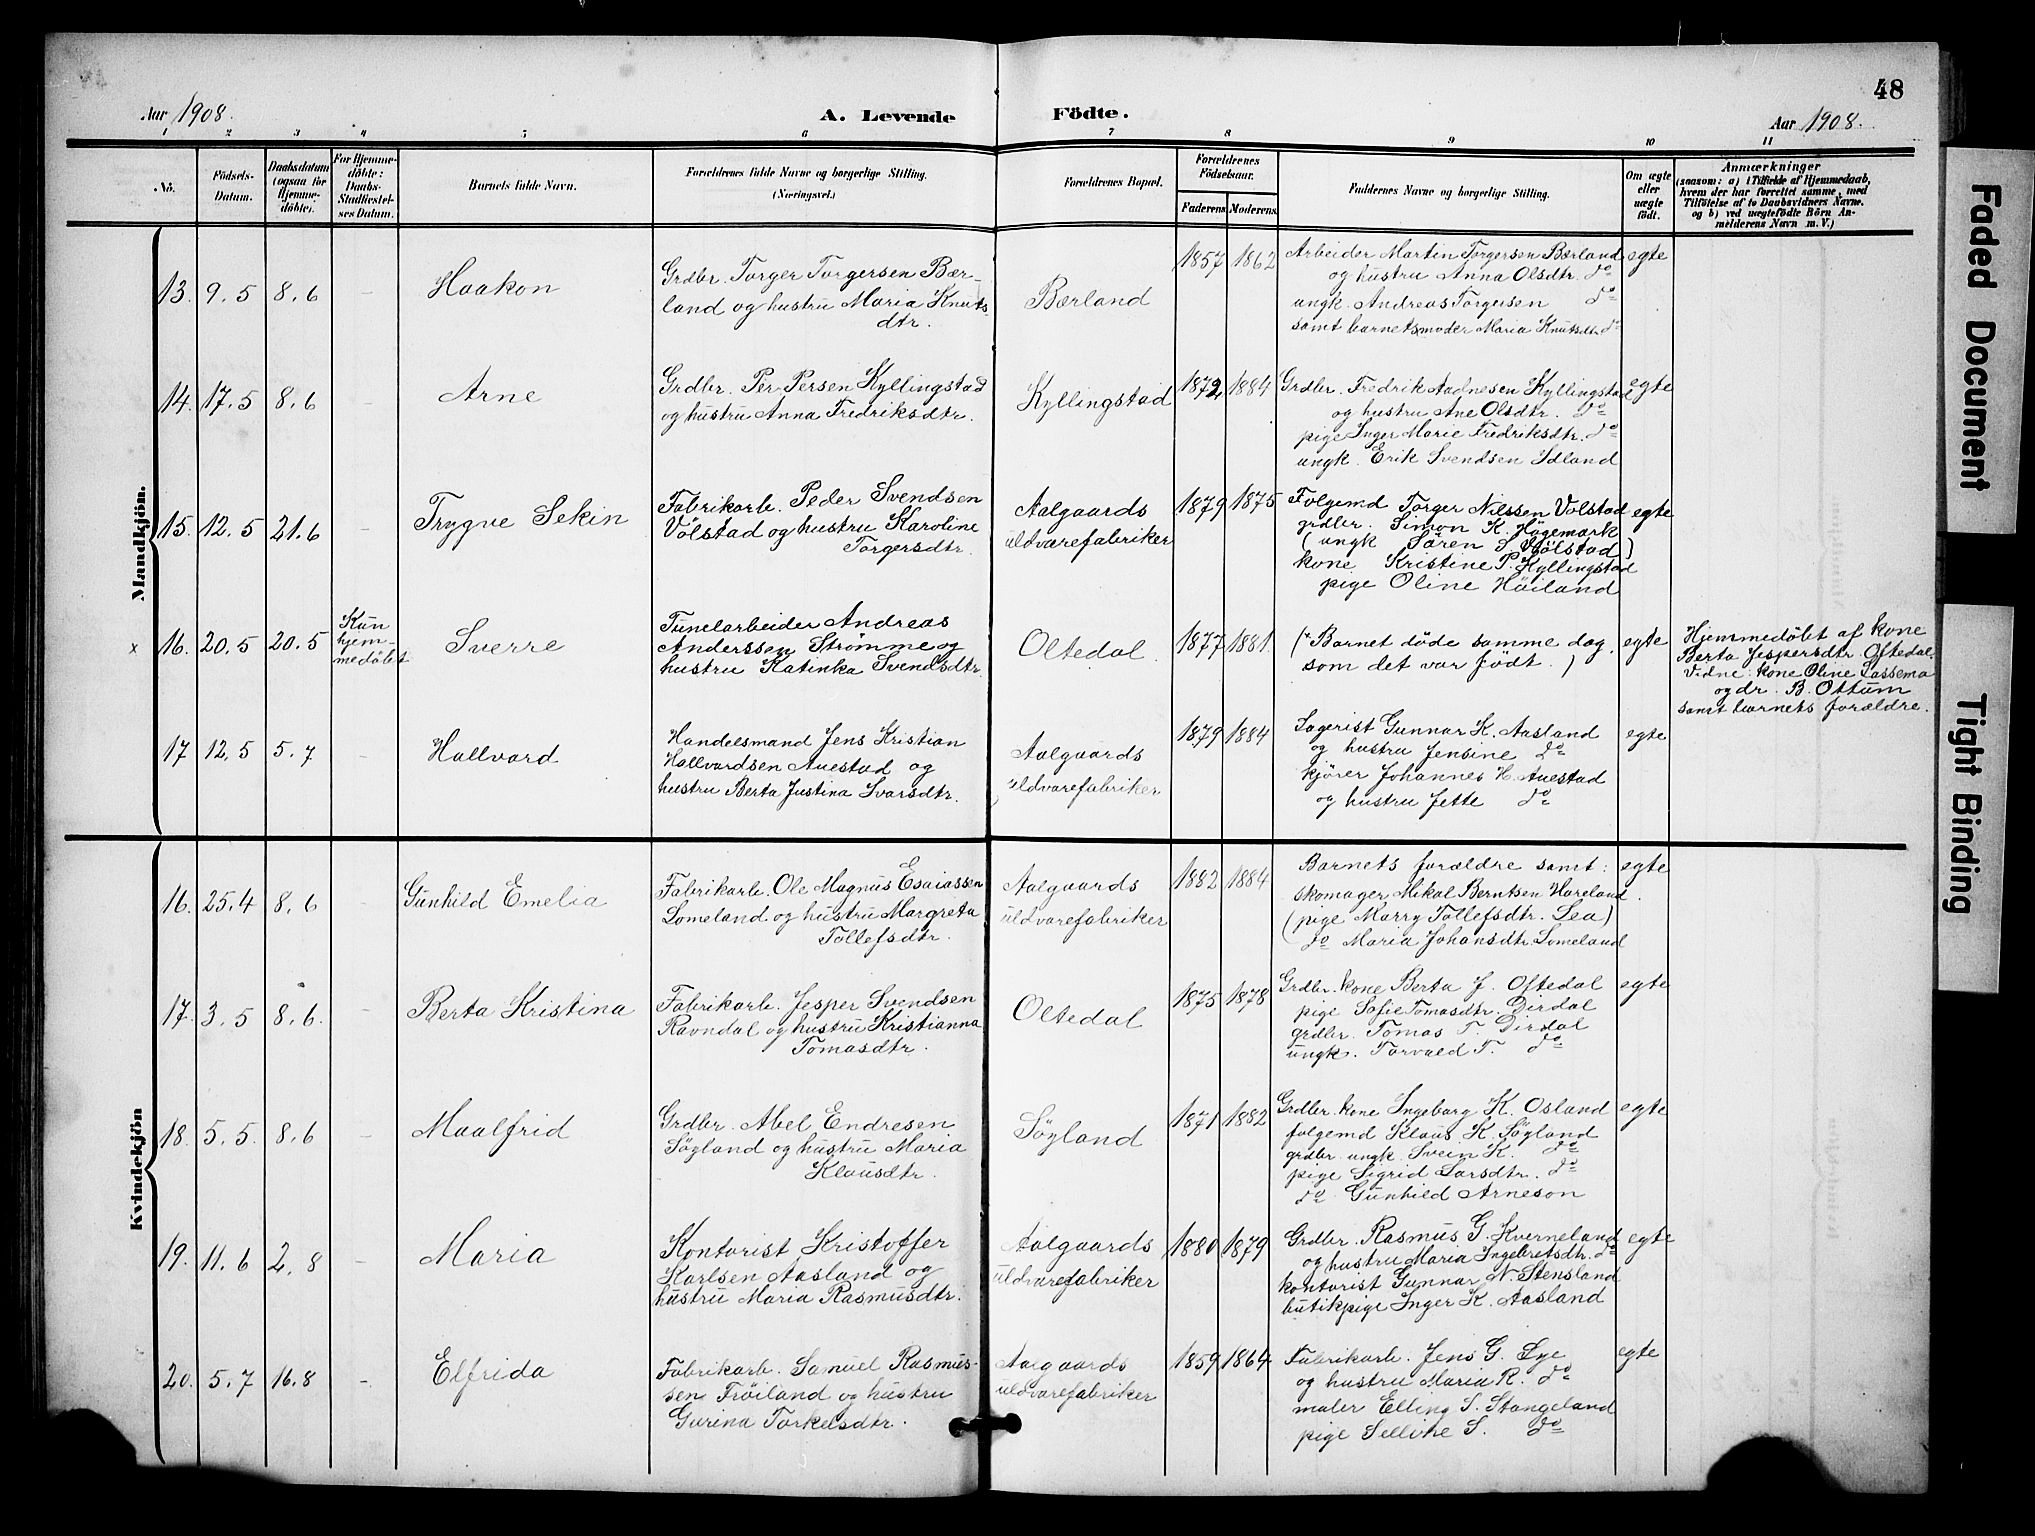 48
Aar 1908.
A. Levende
Födte.
Aar 1908.
1 2 3 4 5 6 7 8 9 10 11
No.
Födsels-
Datum.
Daabsdatum
(ogsaa for
Hjemme-
döbte).
For Hjemme-
döbte:
Daabs-
Stadfæstel-
ses Datum.
Barnets fulde Navn.
Forældrenes fulde Navne og borgerlige Stilling.
(Næringsvei.)
Forældrenes Bopæl.
Forældrenes
Födselsaar.
Faderens
Moderens
Faddernes Navne og borgerlige Stilling.
Om ægte
eller
uægte
födt.
Anmærkninger
(saasom: a) i Tilfælde af Hjemmedaab,
hvem der har forrettet samme, med
Tilföielse af to Daabsvidners Navne.
og b) ved uægtefödte Börn An-
melderens Navn m. V.)
Mandkjön.
13. 9.5 8.6 - Haakon
Grdbr. Torger Torgersen Bær-
land og hustru Maria Knuts-
dtr.
Bærland
1857 1862
Arbeider Martin Torgersen Bærland
og hustru Anna Olsdtr. do
ungk. Andreas Torgersen do
samt barnets moder Maria Knutsdtr. do
egte
14. 17.5 8.6 - Arne
Grdbr. Per Persen Kyllingstad
og hustru Anna Fredriksdtr.
Kyllingstad
1872 1884
Grdbr. Fredrik Aadnesen Kyllingstad
og hustru Ane Olsdtr. do
pige Inger Marie Fredriksdtr. do
ungk. Erik Svendsen Idland
egte
15. 12.5 21.6 - Trygve Sekin
Fabrikarb. Peder Svendsen
Völstad og hustru Karoline
Torgersdtr.
Aalgaards
uldvarefabriker
1879 1875
Folgemd Torger Nilssen Volstad
grdbr. Simon K. Högemark
(ungk Sören S. Hölstad)
kone Kristine P. Kyllingstad
pige Oline Höiland
egte
x 16. 20.5 20.5
Kun
hjem-
medöbt
Sverre
Tunelarbeider Andreas
Anderssen Strömme og
hustru Katinka Svendsdtr.
Oltedal.
1877 1881.
(Barnet döde samme dag,
som det var födt.)
egte
Hjemmedöbt af kone
Berta Jespersdtr. Oftedal.
Vidne: kone Oline Lassema
og dr. B. Ottum
samt barnets forældre.
17 12.5 5.7 - Hallvard
Handelsmand Jens Kristian
Hallvardsen Auestad og
hustru Berta Justina Ivarsdtr.
Aalgaards
uldvarefabriker
1879 1884
Lagerist Gunnar K. Aasland
og hustru Jensine do
kjörer Johannes H. Auestad
og hustru Jette do
egte
Kvindekjön
16. 25.4 8.6 - Gunhild Emelia
Fabrikarb. Ole Magnus Esaiassen
Lomeland og hustru Margreta
Tollefsdtr.
Aalgaards
uldvarefabriker
1882 1884
Barnets forældre samt:
skomager Mikal Berntsen Hareland.
(pige Marry Tollefsdtr. Lea)
do Maria Johansdtr. Lomeland
egte
17. 3.5 8.6. - Berta Kristina
Fabrikarb. Jesper Svendsen
Ravndal og hustru Kristianna
Tomasdtr.
Oltedal
1875 1878
Grdbr. kone Berta J. Oftedal
pige Sofie Tomasdtr. Dirdal
grdbr. Tomas T. Dirdal
ungk. Torvald T. do.
egte
18. 5.5. 8.6 - Maalfrid
Grdbr. Abel Endresen
Söyland og hustru Maria
Klausdtr.
Söyland
1871 1882
Grdbr. kone Ingeborg K. Osland
folgemd Klaus K. Söyland
grdbr. ungk. Svein K. do
pige Sigrid Larsdtr. do
do Gunhild Arneson
egte
19. 11.6 2.8 - Maria
Kontorist Kristoffer
Karlsen Aasland og
hustru Maria Rasmusdtr.
Aalgaards
uldvarefabriker
1880 1879
Grdbr. Rasmus G. Kverneland
og hustru Maria Ingebretsdtr. do
kontorist Gunnar N. Stensland
butikpige Inger K. Aasland
egte
20. 5.7 16.8 - Elfrida
Fabrikarb. Samuel Rasmus-
sen Fröiland og hustru
Gurina Torkelsdtr.
Aalgaards
uldvarefabriker
1859 1864
Fabrikarb. Jens G. Lye
og hustru Maria R. do
maler Elling S. Stangeland
pige Selline S. do
egte
Faded Document
Tight Binding